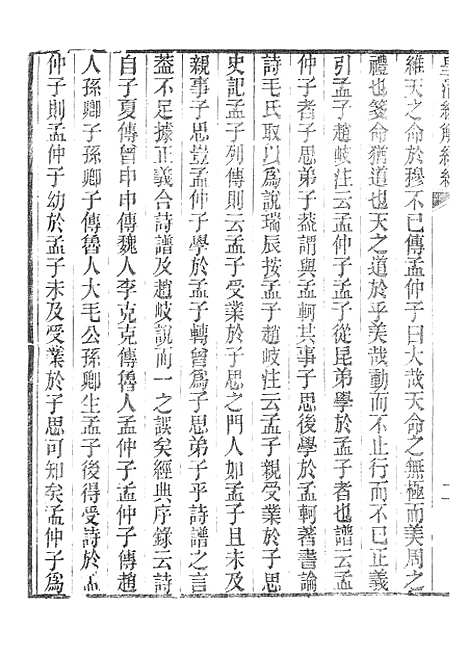 皇清經解續編
維天之命於穆不已傳孟仲子曰大哉天命之無極而美周之
禮也箋命猶道也天之道於乎美哉動而不止行而不已正義
引孟子趙岐注云孟仲子孟子從昆弟學於孟子者也譜云孟
仲子者子思弟子葢謂與孟軻共事子思後學於孟軻著書論
詩毛氏取以爲說瑞辰按孟子趙岐注云孟子親受業於子思
史記孟子列傳則云孟子受業於子思之門人如孟子且未及
親事子思豈孟仲子學於孟子轉曾爲子思弟子乎詩譜之言
葢不足據正義合詩譜及趙岐說而一之誤矣經典序錄云詩
自子夏傳曾申申傳魏人李克克傳魯人孟仲子孟仲子傳趙
人孫卿子孫卿子傳魯人大毛公孫卿生孟子後得受詩於孟
仲子則孟仲子幼於孟子未及受業於子思可知矣孟仲子爲